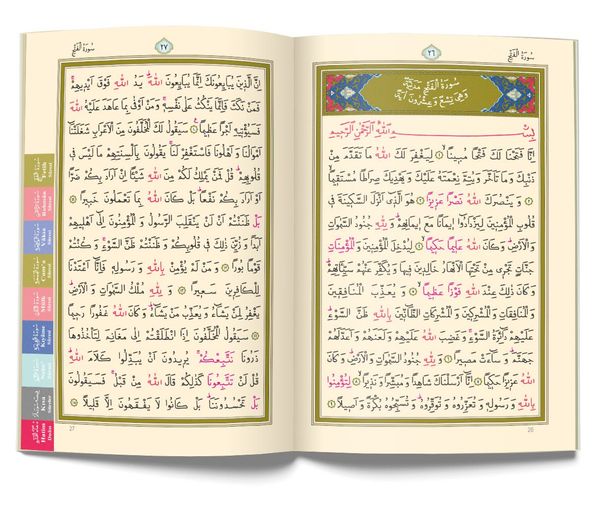 سُورَةُ الْفَتْحِ
٢٦
سُورَةُ الْفَتْحِ مَدَنِيَّةٌ
وَهِيَ تِسْعٌ وَعِشْرُونَ آيَةً
بِسْمِ اللّٰهِ الرَّحْمٰنِ الرَّحِيمِ
اِنَّا فَتَحْنَا لَكَ فَتْحًا مُبِينًا ﴿١﴾ لِيَغْفِرَ لَكَ اللّٰهُ مَا تَقَدَّمَ مِنْ
ذَنْبِكَ وَمَا تَاَخَّرَ وَيُتِمَّ نِعْمَتَهُ عَلَيْكَ وَيَهْدِيَكَ صِرَاطًا مُسْتَقِيمًا
﴿٢﴾ وَيَنْصُرَكَ اللّٰهُ نَصْرًا عَزِيزًا ﴿٣﴾ هُوَ الَّذِي اَنْزَلَ السَّكِينَةَ فِي
قُلُوبِ الْمُؤْمِنِينَ لِيَزْدَادُوا اِيمَانًا مَعَ اِيمَانِهِمْ وَلِلّٰهِ جُنُودُ السَّمٰوَاتِ
وَالْاَرْضِ وَكَانَ اللّٰهُ عَلِيمًا حَكِيمًا ﴿٤﴾ لِيُدْخِلَ الْمُؤْمِنِينَ وَالْمُؤْمِنَاتِ
جَنَّاتٍ تَجْرِي مِنْ تَحْتِهَا الْاَنْهَارُ خَالِدِينَ فِيهَا وَيُكَفِّرَ عَنْهُمْ سَيِّـَٔاتِهِمْ
وَكَانَ ذٰلِكَ عِنْدَ اللّٰهِ فَوْزًا عَظِيمًا ﴿٥﴾ وَيُعَذِّبَ الْمُنَافِقِينَ
وَالْمُنَافِقَاتِ وَالْمُشْرِكِينَ وَالْمُشْرِكَاتِ الظَّانِّينَ بِاللّٰهِ ظَنَّ السَّوْءِ
عَلَيْهِمْ دَائِرَةُ السَّوْءِ وَغَضِبَ اللّٰهُ عَلَيْهِمْ وَلَعَنَهُمْ وَاَعَدَّ لَهُمْ
جَهَنَّمَ وَسَاءَتْ مَصِيرًا ﴿٦﴾ وَلِلّٰهِ جُنُودُ السَّمٰوَاتِ وَالْاَرْضِ وَكَانَ
اللّٰهُ عَزِيزًا حَكِيمًا ﴿٧﴾ اِنَّا اَرْسَلْنَاكَ شَاهِدًا وَمُبَشِّرًا وَنَذِيرًا ﴿٨﴾ لِتُؤْمِنُوا
بِاللّٰهِ وَرَسُولِهِ وَتُعَزِّرُوهُ وَتُوَقِّرُوهُ وَتُسَبِّحُوهُ بُكْرَةً وَاَصِيلًا ﴿٩﴾
26
سُورَةُ الْفَتْحِ
٢٧
اِنَّ الَّذِينَ يُبَايِعُونَكَ اِنَّمَا يُبَايِعُونَ اللّٰهَ يَدُ اللّٰهِ فَوْقَ اَيْدِيهِمْ
فَمَنْ نَكَثَ فَاِنَّمَا يَنْكُثُ عَلٰى نَفْسِهِ وَمَنْ اَوْفٰى بِمَا عَاهَدَ عَلَيْهُ اللّٰهَ
فَسَيُؤْتِيهِ اَجْرًا عَظِيمًا ﴿١٠﴾ سَيَقُولُ لَكَ الْمُخَلَّفُونَ مِنَ الْاَعْرَابِ شَغَلَتْنَا
اَمْوَالُنَا وَاَهْلُونَا فَاسْتَغْفِرْ لَنَا يَقُولُونَ بِاَلْسِنَتِهِمْ مَا لَيْسَ فِي
قُلُوبِهِمْ قُلْ فَمَنْ يَمْلِكُ لَكُمْ مِنَ اللّٰهِ شَيْـًٔا اِنْ اَرَادَ بِكُمْ ضَرًّا
اَوْ اَرَادَ بِكُمْ نَفْعًا بَلْ كَانَ اللّٰهُ بِمَا تَعْمَلُونَ خَبِيرًا ﴿١١﴾
بَلْ ظَنَنْتُمْ اَنْ لَنْ يَنْقَلِبَ الرَّسُولُ وَالْمُؤْمِنُونَ اِلٰى اَهْلِيهِمْ
اَبَدًا وَزُيِّنَ ذٰلِكَ فِي قُلُوبِكُمْ وَظَنَنْتُمْ ظَنَّ السَّوْءِ وَكُنْتُمْ
قَوْمًا بُورًا ﴿١٢﴾ وَمَنْ لَمْ يُؤْمِنْ بِاللّٰهِ وَرَسُولِهِ فَاِنَّا اَعْتَدْنَا
لِلْكَافِرِينَ سَعِيرًا ﴿١٣﴾ وَلِلّٰهِ مُلْكُ السَّمٰوَاتِ وَالْاَرْضِ
يَغْفِرُ لِمَنْ يَشَاءُ وَيُعَذِّبُ مَنْ يَشَاءُ وَكَانَ اللّٰهُ غَفُورًا رَحِيمًا
﴿١٤﴾ سَيَقُولُ الْمُخَلَّفُونَ اِذَا انْطَلَقْتُمْ اِلٰى مَغَانِمَ لِتَأْخُذُوهَا
ذَرُونَا نَتَّبِعْكُمْ يُرِيدُونَ اَنْ يُبَدِّلُوا كَلَامَ اللّٰهِ
قُلْ لَنْ تَتَّبِعُونَا كَذٰلِكُمْ قَالَ اللّٰهُ مِنْ قَبْلُ فَسَيَقُولُونَ
بَلْ تَحْسُدُونَنَا بَلْ كَانُوا لَا يَفْقَهُونَ اِلَّا قَلِيلًا ﴿١٥﴾
27
Fetih Sûresi
Rahmân Sûresi
Vâkıa Sûresi
Cum'a Sûresi
Mülk Sûresi
Kıyâme Sûresi
Nebe' Sûresi
Kısa Sûreler
Hatim Duâsı